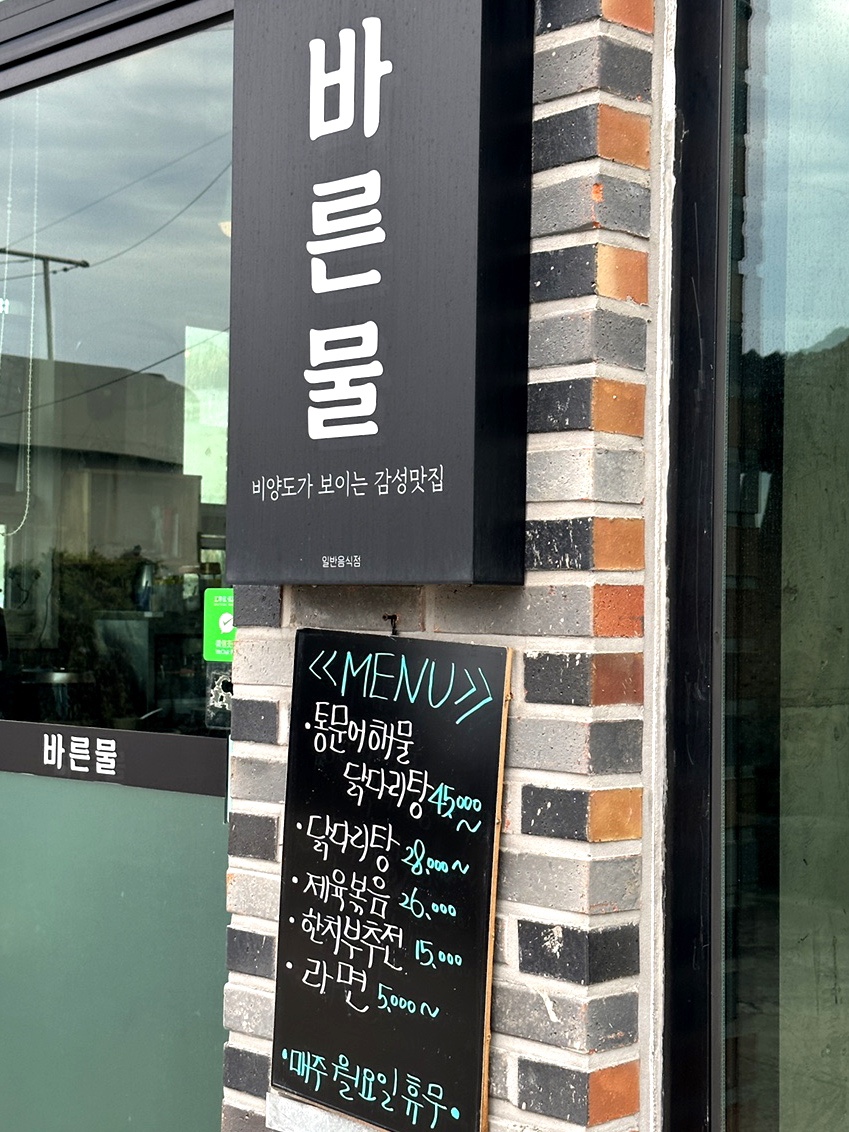 바른물
비양도가 보이는 감성맛집
일반음식점
바른물
<<MENU>>
·통문어해물
닭다리탕 45,000~
·닭다리탕 28,000~
·제육볶음 26,000
·한치부추전 15,000
·라면 5,000~
·매주 월요일 휴무·